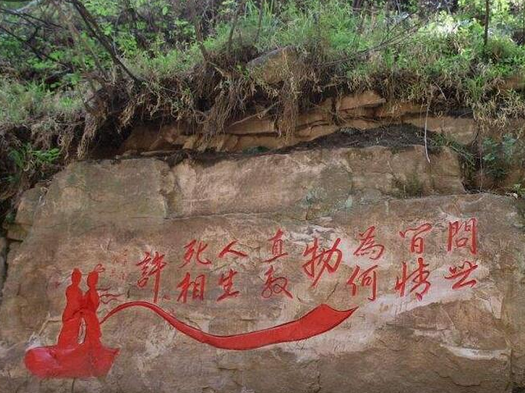 問世
間情
為何
物
直教
人生
死相
許